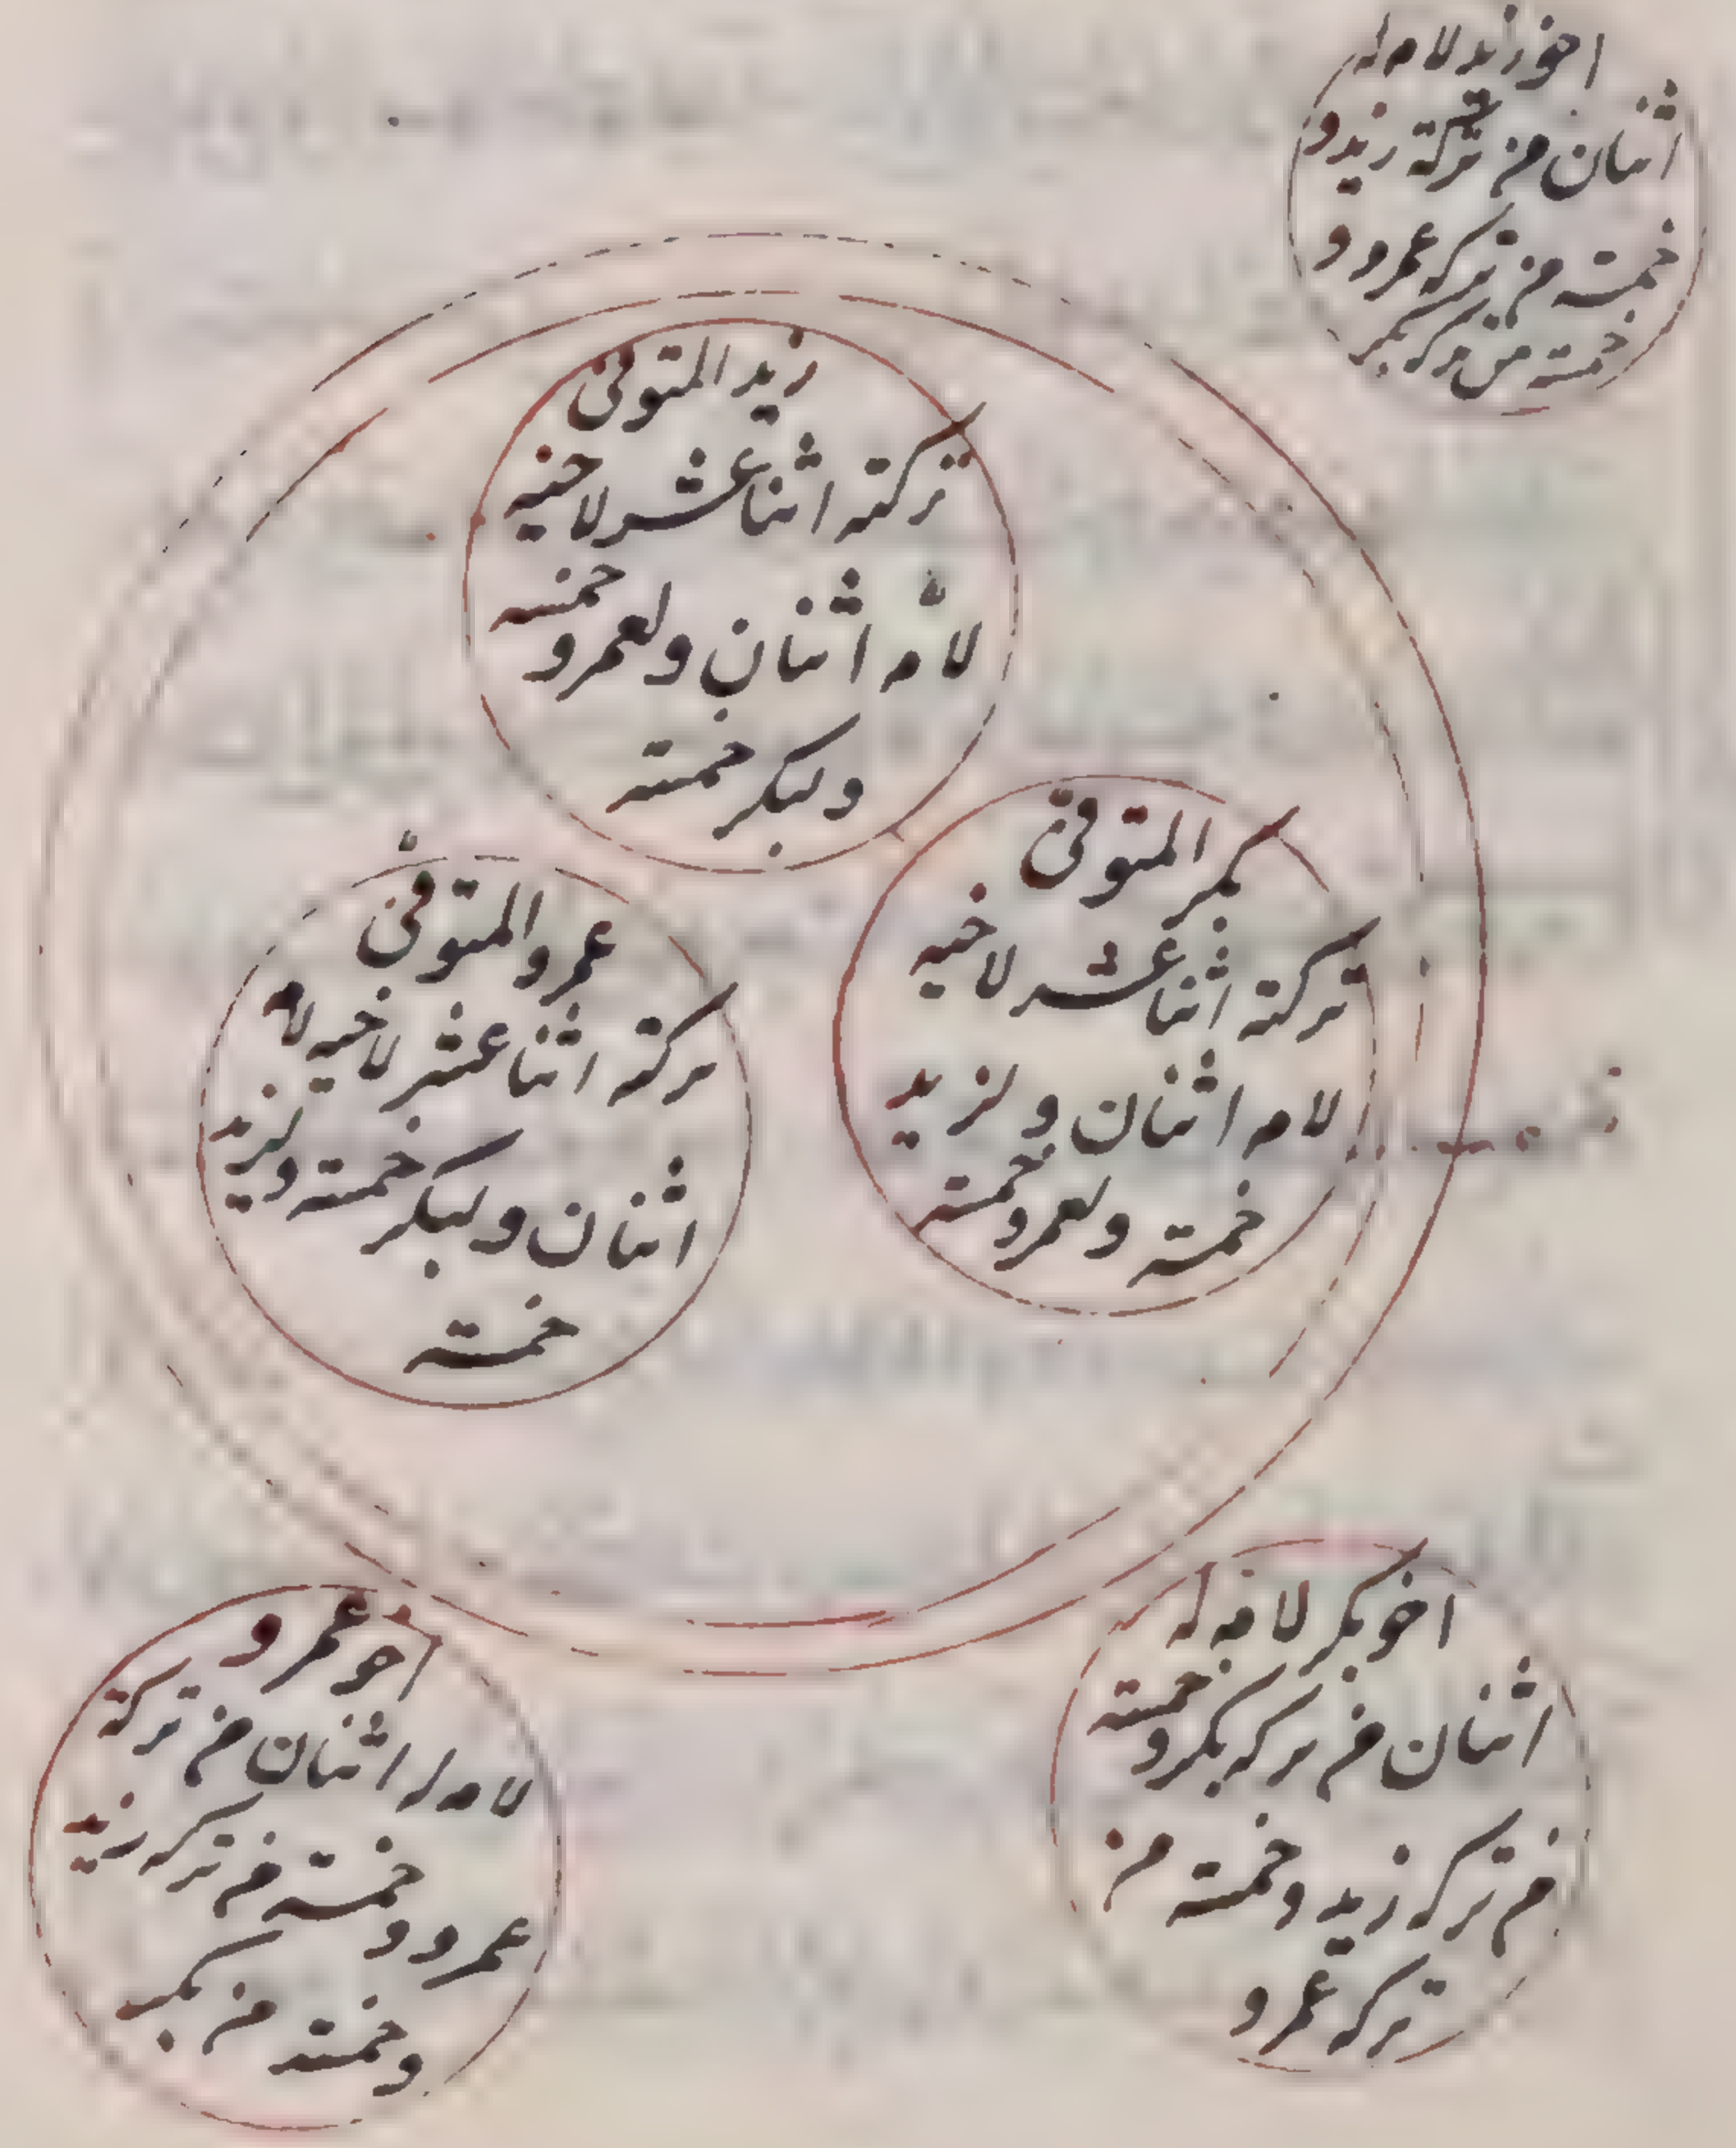 اخو زيد لامه له
اثنان من تركة زيد و
خمسة من تركه عمرو و
خمسة من تركه بكر
زيد المتوفى
تركته اثنا عشر لاخيه
لامه اثنان ولعمرو خمسه
ولبكر خمسته
بكر المتوفى
تركته اثنا عشر لاخيه
لامه اثنان ولزيد
خمسته ولعمرو خمسته
عمرو المتوفى
تركته اثنا عشر لاخيه لامه
اثنان ولبكر خمسته ولزيد
خمسته
اخو بكر لامه له
اثنان من تركه بكر وخمسته
من تركه زيد وخمسته من
تركه عمرو
اخو عمرو
لامه له اثنان من تركة
عمرو وخمسة من تركه زيد
وخمسته من بكر